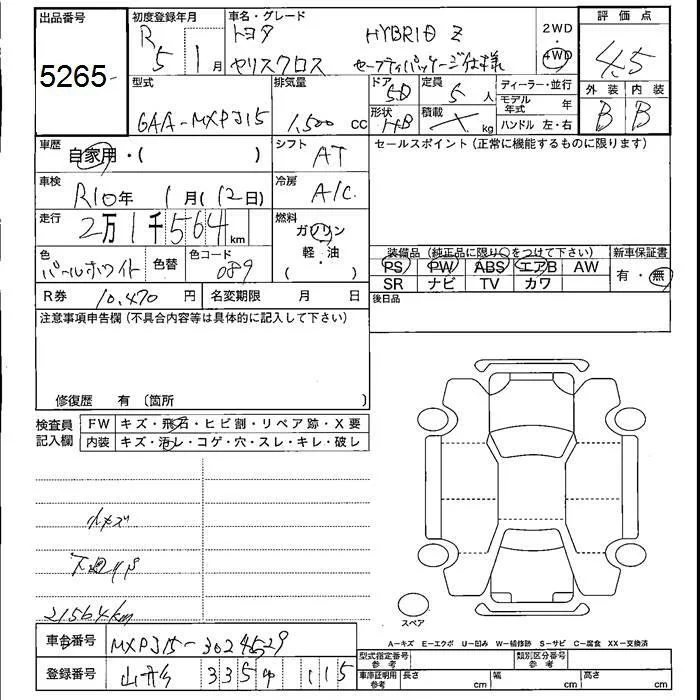 出品番号
5265
初度登録年月
R5 1月
車名・グレード
トヨタ HYBRID Z
ヤリスクロス セーフティパッケージ仕様
2WD
・
4WD
評価点
4.5
外装 内装
B B
型式
6AA-MXPJ15
排気量
1,500 cc
ドア
5D
定員
5人
形状
HB
積載
kg
ディーラー・並行
モデル年式 年
ハンドル 左・右
車歴
自家用・( )
シフト
AT
セールスポイント(正常に機能するものに限ります)
車検
R10年 1月(12日)
冷房
A/C
走行
2万1千564km
燃料
ガソリン
・
軽・油
( )
色
パールホワイト
色替
色コード
089
装備品(純正品に限り○をつけて下さい)
PS PW ABS エアB AW
SR ナビ TV カワ
新車保証書
有・無
R券 10,470円
名変期限 月 日
後日品
注意事項申告欄(不具合内容等は具体的に記入して下さい)
修復歴 有〔箇所 〕
検査員記入欄
FW キズ・飛石・ヒビ割・リペア跡・X要
内装 キズ・汚レ・コゲ・穴・スレ・キレ・破レ
小キズ
21564km
スペア
A-キズ E-エクボ U-凹み W-補修跡 S-サビ C-腐食 XX-交換済
車台番号 MXPJ15-3024529
登録番号
335 115
型式指定番号
参考
類別区分番号
参考
車庫証明用
参考
長さ cm
幅 cm
高さ cm